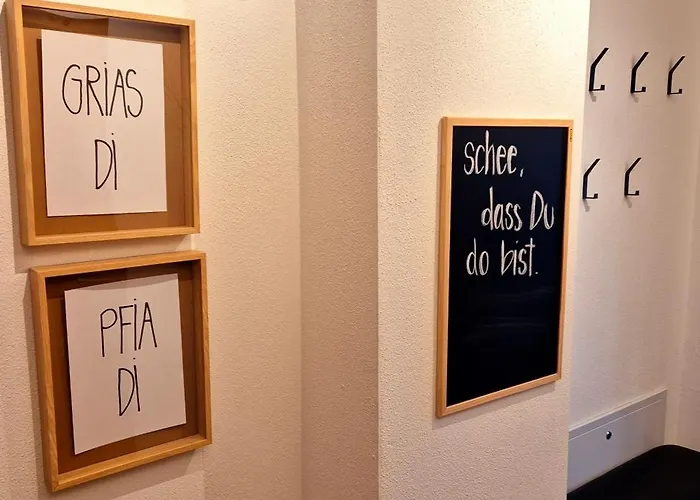 GRIAS
Di
PFiA
Di
schee,
dass Du
do bist.